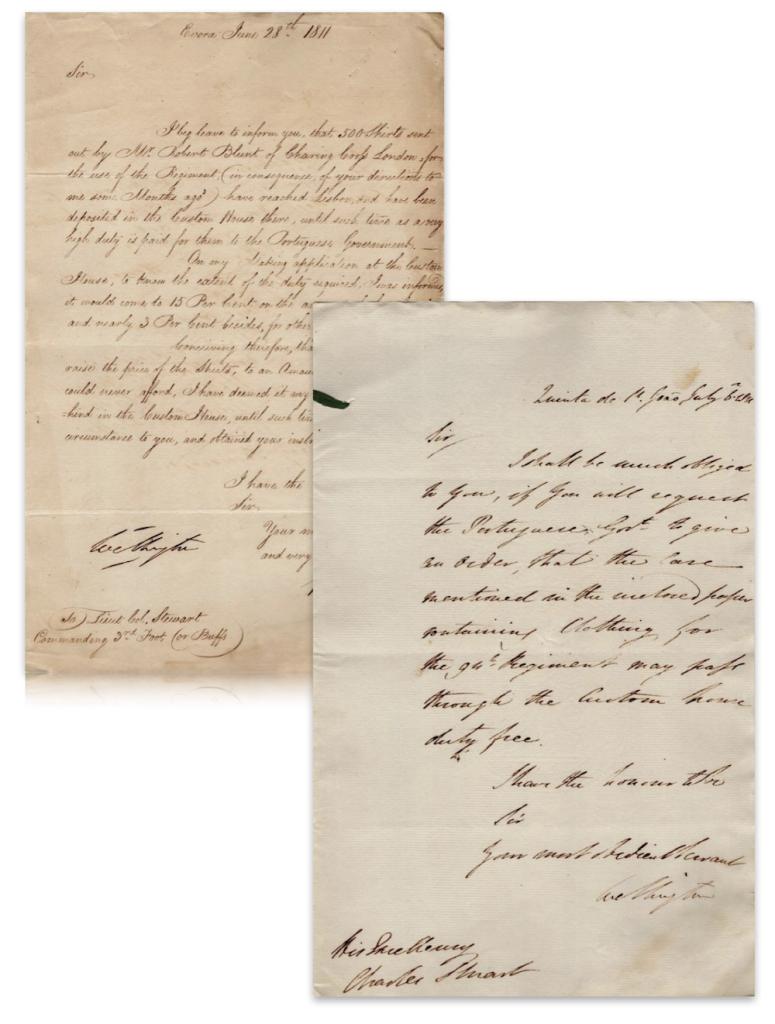 Evora June 28th 1811
Sir,
I beg leave to inform you, that 500 Shirts sent
out by Mr. Robert Blunt of Charing Cross London, for
the use of the Regiment (in consequence, of your directions to
me some Months ago) have reached Lisbon, and have been
deposited in the Custom House there, until such time as a very
high duty is paid for them to the Portuguese Government. —
On my making application at the Custom
House, to know the extent of the duty required, I was informed,
it would come to 15 Per Cent on the
and nearly 3 Per Cent besides, for other
Conceiving therefore, tha
raise the price of the Shirts, to an Amou
could never afford, I have deemed it
hind in the Custom House, until such tim
circumstance to you, and obtained your inst
I have the
Sir,
Your m
and very
Wellington
To Lieut Col. Stewart
Commanding 3rd Foot (or Buffs)
Quinta de St. João July 6th 1811
Sir,
I shall be much obliged
to You, if You will request
the Portuguese Govt. to give
an order, that the Case
mentioned in the inclosed paper
containing Clothing for
the 94th Regiment may pass
through the Custom house
duty free.
I have the honour to be
Sir
Your most obedient Servant
Wellington
His Excellency
Charles Stuart